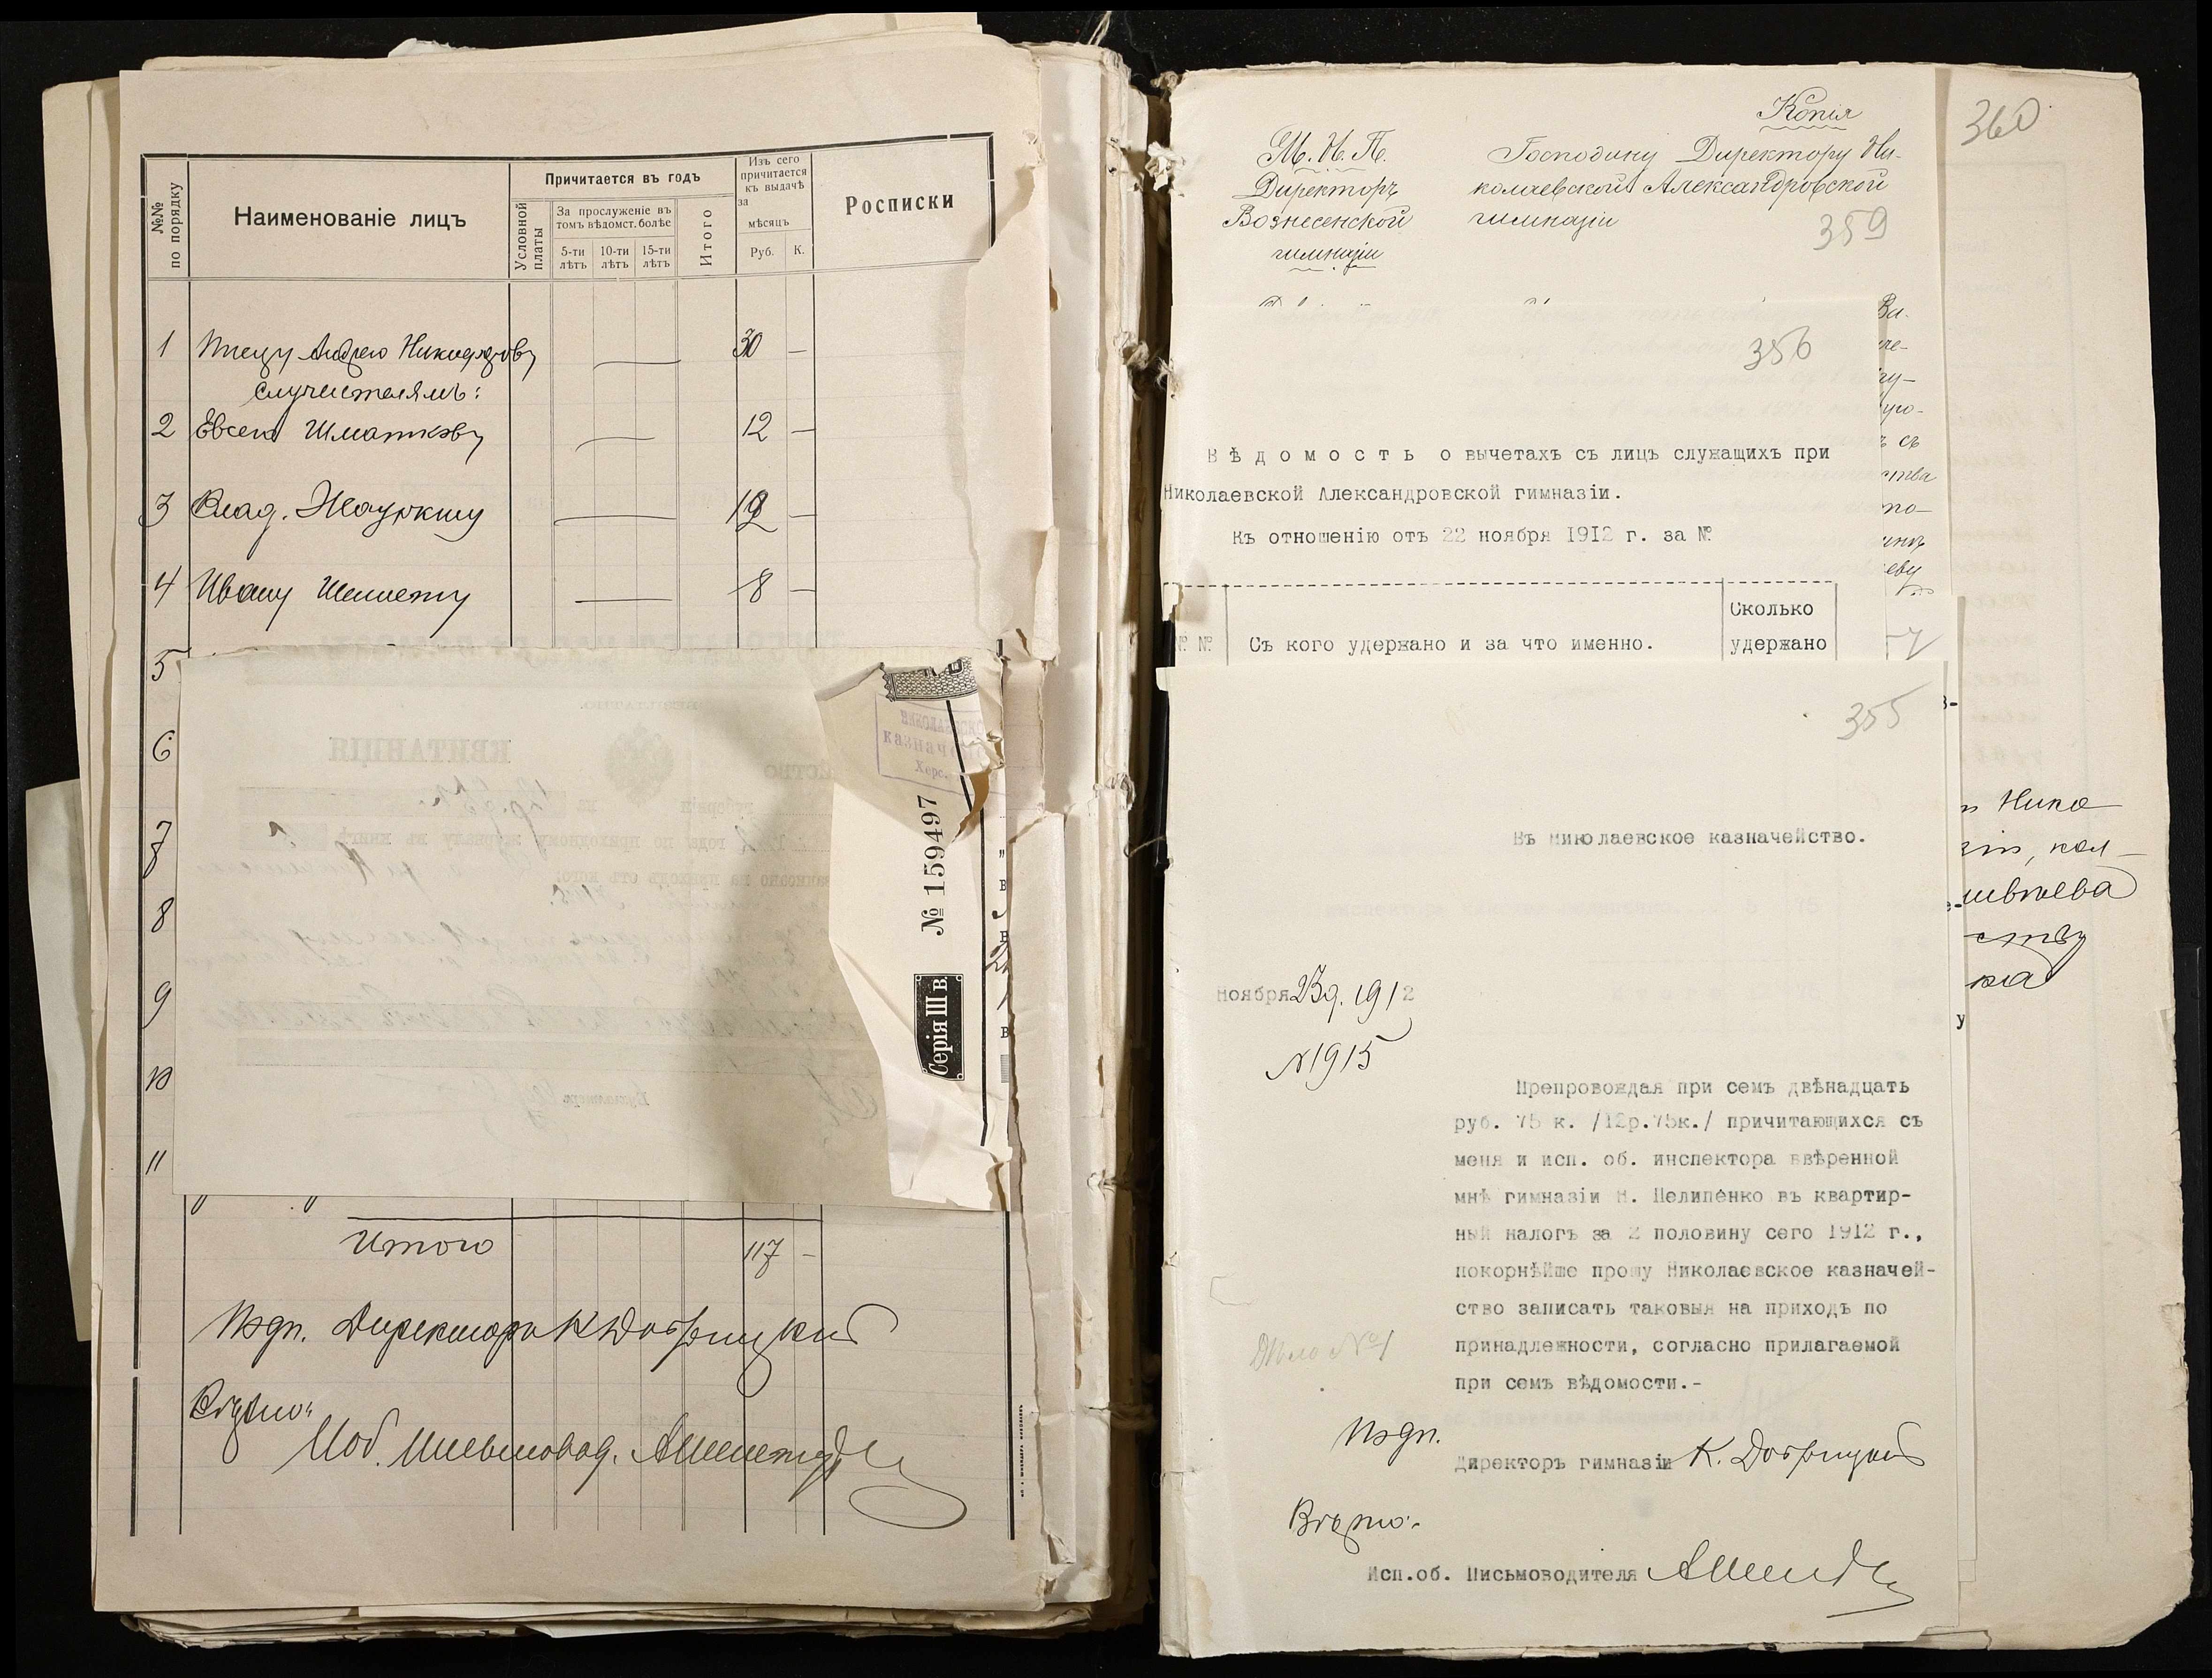 №№
по порядку
Наименованіе лицъ
Причитается въ годъ
Условной
платы
За прослуженіе въ
томъ вѣдомст. болѣе
5-ти
лѣтъ
10-ти
лѣтъ
15-ти
лѣтъ
Итого
Изъ сего
причитается
къ выдачѣ
за
мѣсяцъ
Руб.
К.
Росписки
1
Андрею
30 —
служителямъ:
2 Евсею Шматкову 12 —
3 Влад. 12 —
4 Ивану Шеметту 8 —
5
6
7
8
9
10
11
КВИТАНЦІЯ
№ 159497
Серія III в.
казначе
Херс.
Итого 117 —
Подп. Директоръ К Добрицкій
Вѣрно:
Иоб. Письмовод.
Копія
М. Н. П.
Директоръ
Вознесенской
гимназіи
Господину Директору Ни-
колаевской Александровской
гимназіи
359
360
356
Вѣдомость о вычетахъ съ лицъ служащихъ при
Николаевской Александровской гимназіи.
Къ отношенію отъ 22 ноября 1912 г. за №
№ №
Съ кого удержано и за что именно.
Сколько
удержано
355
Въ Николаевское казначейство.
Ноября 23 д. 1912
№ 1915
Препровождая при семъ двѣнадцать
руб. 75 к. /12р.75к./ причитающихся съ
меня и исп. об. инспектора ввѣренной
мнѣ гимназіи Н. Пелипенко въ квартир-
ный налогъ за 2 половину сего 1912 г.,
покорнѣйше прошу Николаевское казначей-
ство записать таковыя на приходъ по
принадлежности, согласно прилагаемой
при семъ вѣдомости.-
Дѣло № 1
Подп.
Директоръ гимназіи К. Добрицкій
Вѣрно:
Исп.об. Письмоводителя